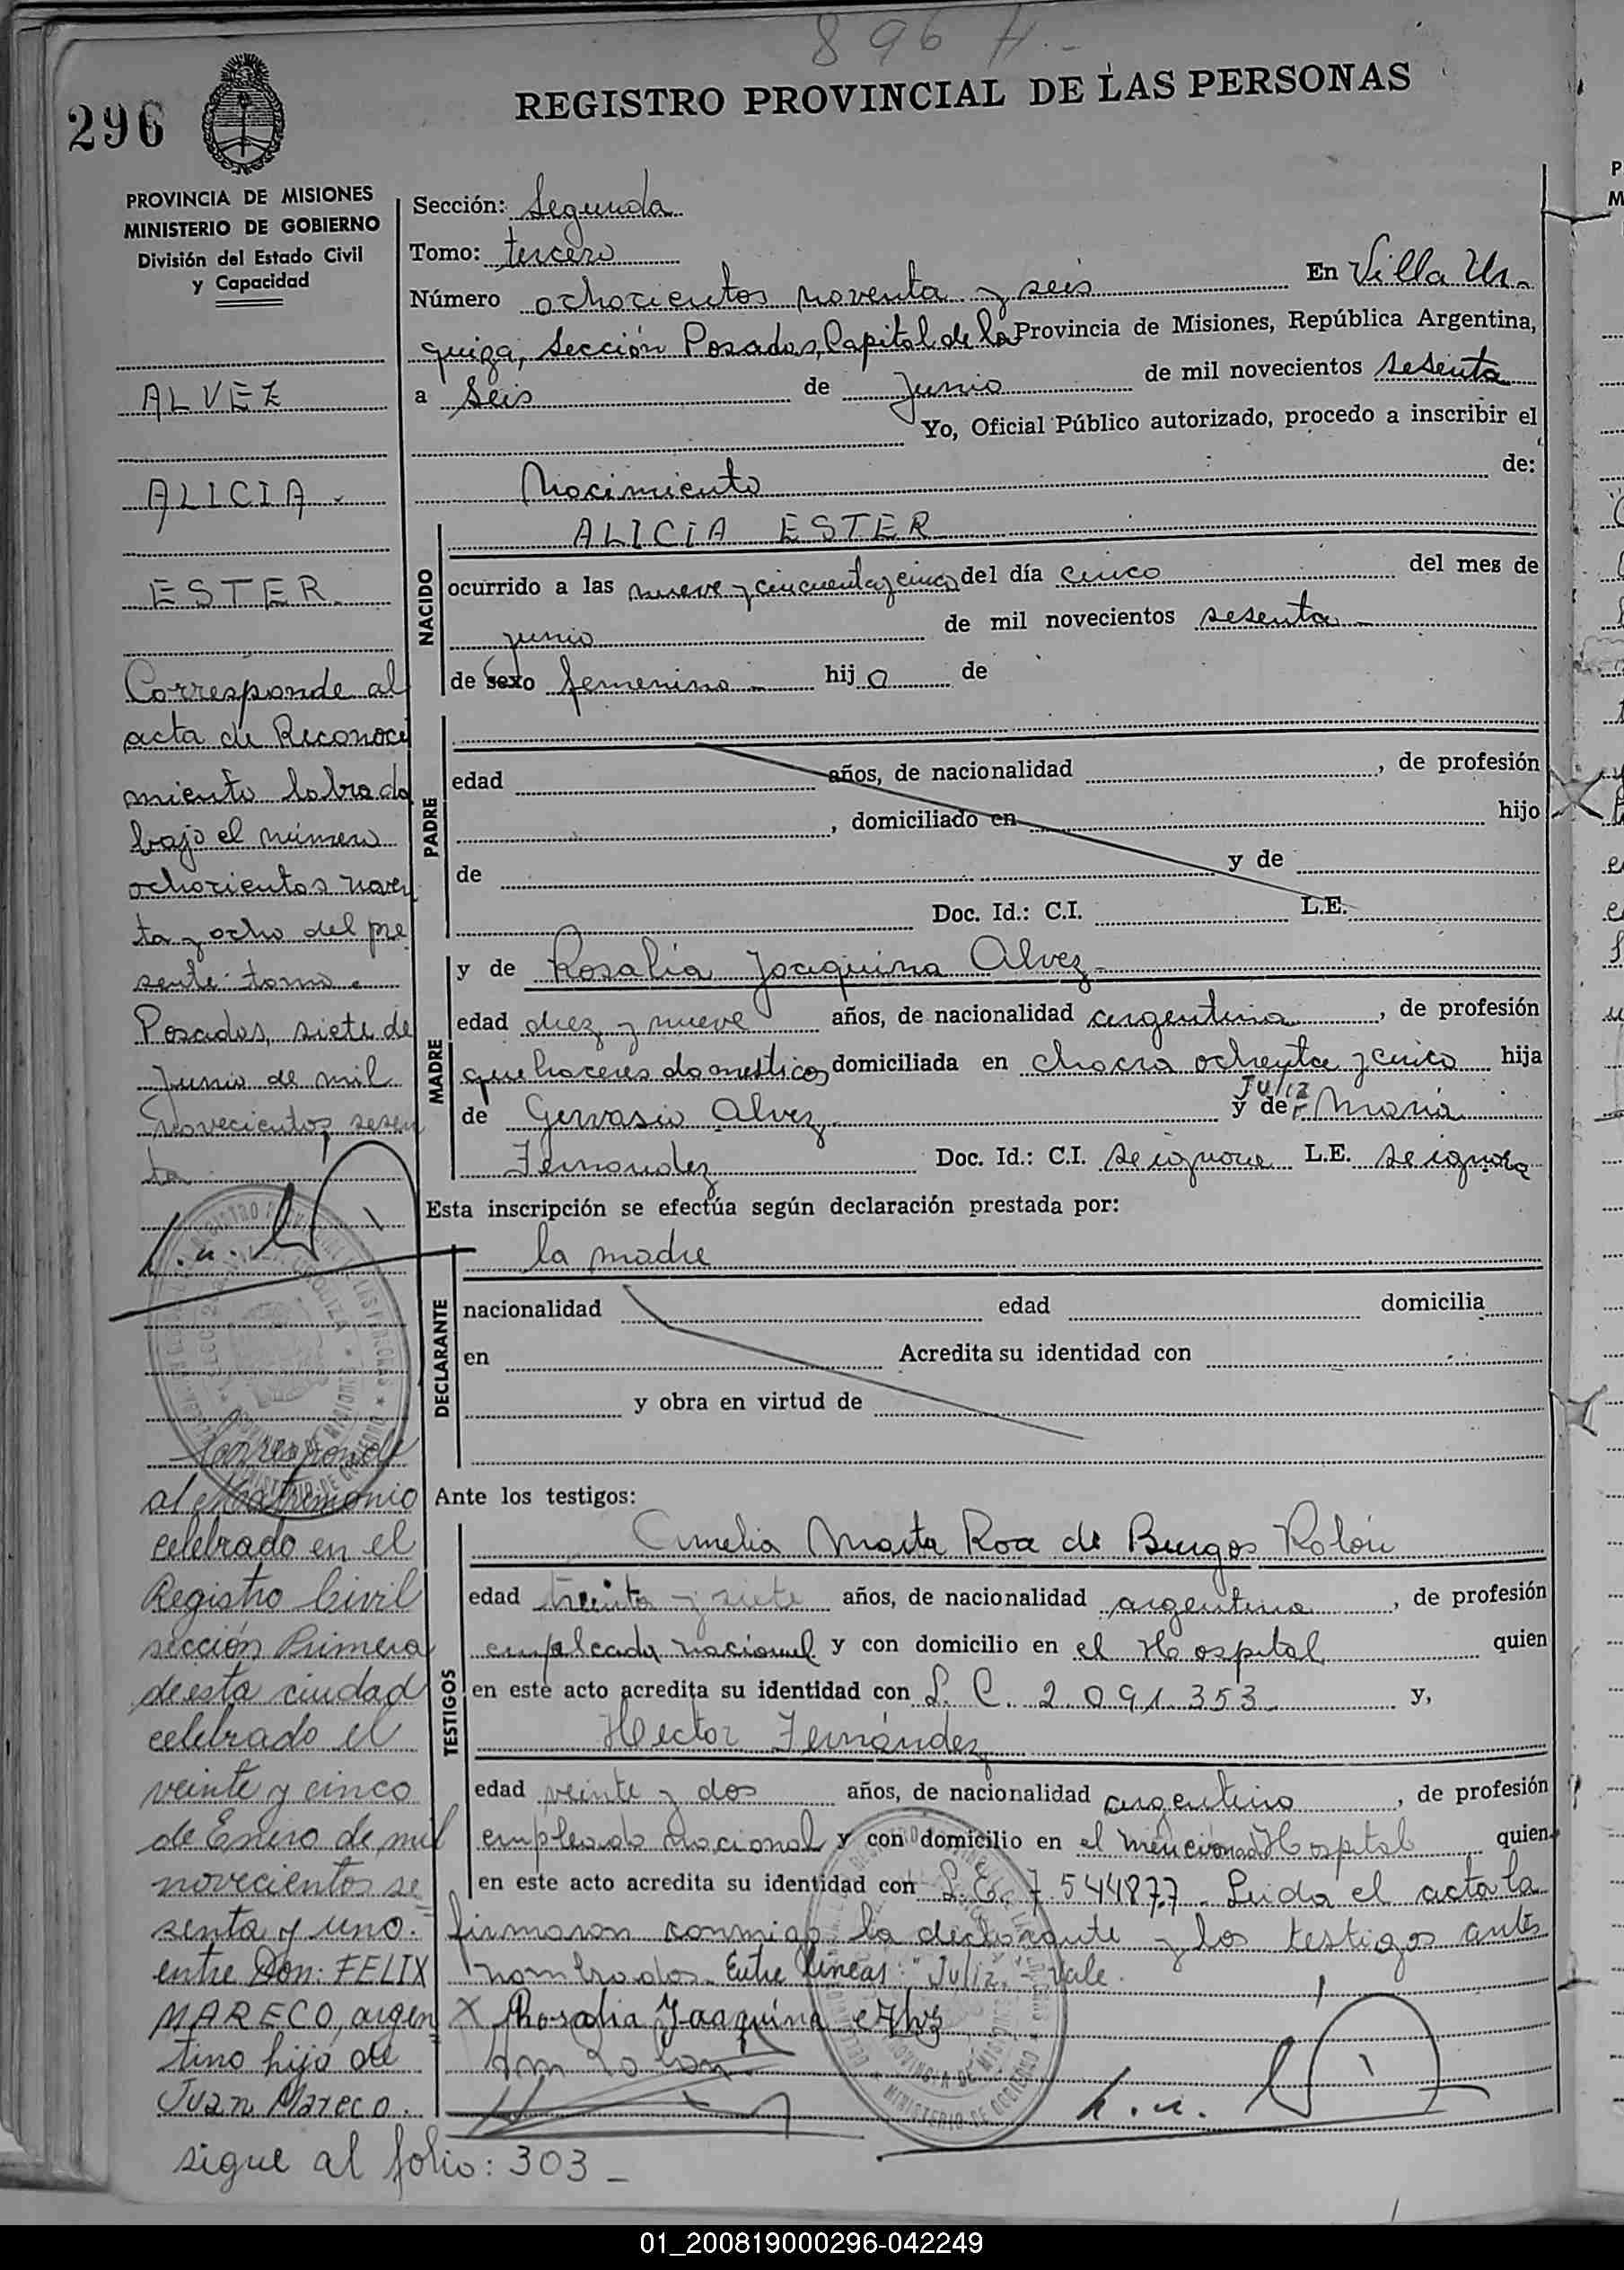 896 H.-
296
REGISTRO PROVINCIAL DE LAS PERSONAS
PROVINCIA DE MISIONES
MINISTERIO DE GOBIERNO
División del Estado Civil
y Capacidad
ALVEZ
ALICIA
ESTER
Corresponde al
acta de Reconoci
miento labrada
bajo el número
ochocientos noven
ta y ocho del pre
sente tomo.
Posadas, siete de
Junio de mil
novecientos sesen
ta
Corresponde
al Matrimonio
celebrado en el
Registro Civil
sección Primera
de esta ciudad
celebrado el
veinte y cinco
de Enero de mil
novecientos se
senta y uno.
entre Don: FELIX
MARECO, argen
tino hijo de
Juan Mareco.
sigue al folio: 303 -
Sección: Segunda
Tomo: tercero
Número ochocientos noventa y seis En Villa Ur-
quiza, Sección Posadas, Capital de la Provincia de Misiones, República Argentina,
a Seis de Junio de mil novecientos sesenta
Yo, Oficial Público autorizado, procedo a inscribir el
Nacimiento de:
NACIDO
ALICIA ESTER
ocurrido a las nueve y cincuenta y cinco del día cinco del mes de
junio de mil novecientos sesenta -
de sexo femenino - hij a de
PADRE
edad años, de nacionalidad , de profesión
, domiciliado en hijo
de y de
Doc. Id.: C.I. L.E.
MADRE
y de Rosalia Joaquina Alvez -
edad diez y nueve años, de nacionalidad argentina , de profesión
quehaceres domesticos domiciliada en chacra ochenta y cinco hija
Juliz
de Gervasio Alvez y de Maria
Fernandez Doc. Id.: C.I. se ignora L.E. se ignora
Esta inscripción se efectúa según declaración prestada por:
DECLARANTE
la madre
nacionalidad edad domicilia
en Acredita su identidad con
y obra en virtud de
Ante los testigos:
TESTIGOS
Amelia Marta Roa de Burgos Rolón
edad treinta y siete años, de nacionalidad argentina , de profesión
empleada nacional y con domicilio en el Hospital quien
en este acto acredita su identidad con L. C. 2.091.353 y,
Hector Fernández
edad veinte y dos años, de nacionalidad argentino , de profesión
empleado nacional y con domicilio en el mencionado Hospital quien
en este acto acredita su identidad con L.E. 7544877. Leida el acta la
firmaron conmigo la declarante y los testigos antes
nombrados. Entre líneas: "Juliz" - Vale.
X Rosalia Joaquina Alvez
01_200819000296-042249